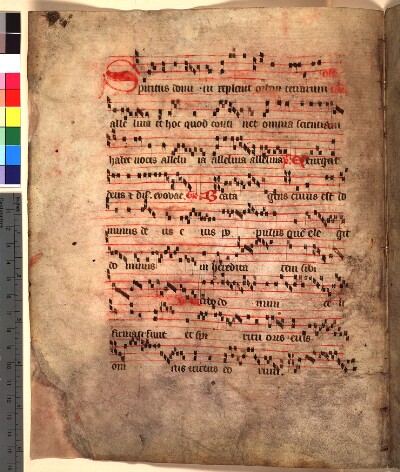 Spiritus domi ni replevit orbem terrarum
alle luia et hoc quod conti net omnia scientiam
habet vocis allelu ia alleluia alleluia Exurgat
deus et evovae Beata gens cuius est do
minus de us e ius po pulus quē ele git
do minus in heredita tem sibi
Verbo do mini ce li
firmati sunt et spi ritu oris eius
om nis virtus eo rum.